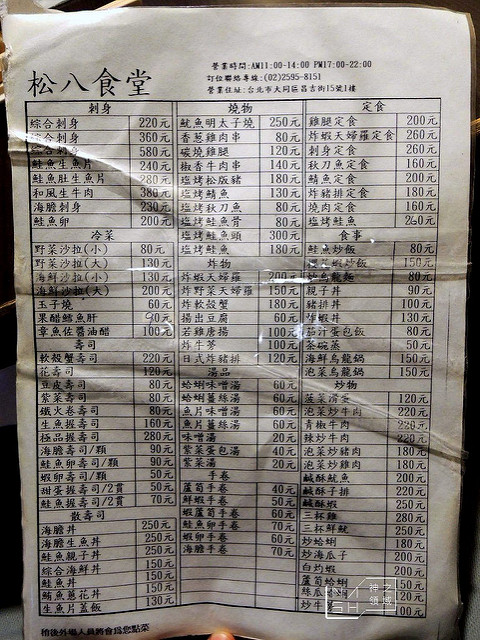 松八食堂
營業時間:AM11:00-14:00 PM17:00-22:00
訂位聯絡專線:(02)2595-8151
營業住址:台北市大同區昌吉街15號1樓
刺身
綜合刺身 220元
綜合刺身 360元
綜合刺身 580元
鮭魚生魚片 240元
鮭魚肚生魚片 280元
和風生牛肉 380元
海膽刺身 230元
鮭魚卵 200元
冷菜
野菜沙拉(小) 80元
野菜沙拉(大) 130元
海鮮沙拉(小) 130元
海鮮沙拉(大) 200元
玉子燒 60元
果醋鱈魚肝 90元
章魚佐醬油醋 100元
壽司
軟殼蟹壽司 220元
花壽司 120元
豆皮壽司 80元
紫菜壽司 80元
鐵火卷壽司 80元
生魚握壽司 160元
極品握壽司 280元
海膽壽司/顆 90元
鮭魚卵壽司/顆 90元
蝦卵壽司/顆 50元
甜蛋握壽司/2貫 50元
鮭魚握壽司/2貫 70元
散壽司
海膽丼 250元
海膽生魚丼 250元
鮭魚親子丼 250元
綜合海鮮丼 150元
鮭魚丼 150元
鮪魚蔥花丼 150元
生魚片蓋飯 130元
燒物
魷魚明太子燒 250元
香蔥雞肉串 80元
碳燒雞腿 120元
椒香牛肉串 140元
塩烤松版豬 180元
塩烤鯖魚 130元
塩烤秋刀魚 80元
塩烤鮭魚骨 80元
塩烤鮭魚頭 300元
塩烤鮭魚 180元
炸物
炸蝦天婦羅 200元
炸野菜天婦羅 150元
炸軟殼蟹 180元
揚出豆腐 60元
若雞唐揚 100元
炸牛蒡 100元
日式炸豬排 120元
湯品
蛤蜊味噌湯 60元
蛤蜊薑絲湯 60元
魚片味噌湯 60元
魚片薑絲湯 60元
味噌湯 20元
紫菜蛋包湯 40元
紫菜湯 20元
手卷
蘆筍手卷 40元
鮮蝦手卷 50元
蝦蘆筍手卷 60元
鮭魚卵手卷 70元
蝦卵手卷 60元
海膽手卷 70元
定食
雞腿定食 200元
炸蝦天婦羅定食 260元
刺身定食 260元
秋刀魚定食 160元
鯖魚定食 200元
炸豬排定食 180元
燒肉定食 160元
塩烤鮭魚 260元
食事
鮭魚炒飯 80元
炒飯 150元
炒烏龍麵 80元
親子丼 90元
豬排丼 100元
炸蝦丼 130元
茄汁蛋包飯 80元
茶碗蒸 50元
海鮮烏龍鍋 150元
泡菜烏龍鍋 150元
炒物
菠菜滑蛋 120元
泡菜炒牛肉 220元
青椒牛肉 220元
辣炒牛肉 220元
泡菜炒豬肉 180元
泡菜炒雞肉 180元
鹹酥魷魚 200元
鹹酥子排 220元
鹹酥蝦 250元
三杯雞 280元
三杯鮮魷 250元
炒蛤蜊 180元
炒海瓜子 200元
白灼蝦 200元
蘆筍蛤蜊 150元
絲瓜 120元
炒牛蒡 100元
稍後外場人員將會為您點菜
神之領域